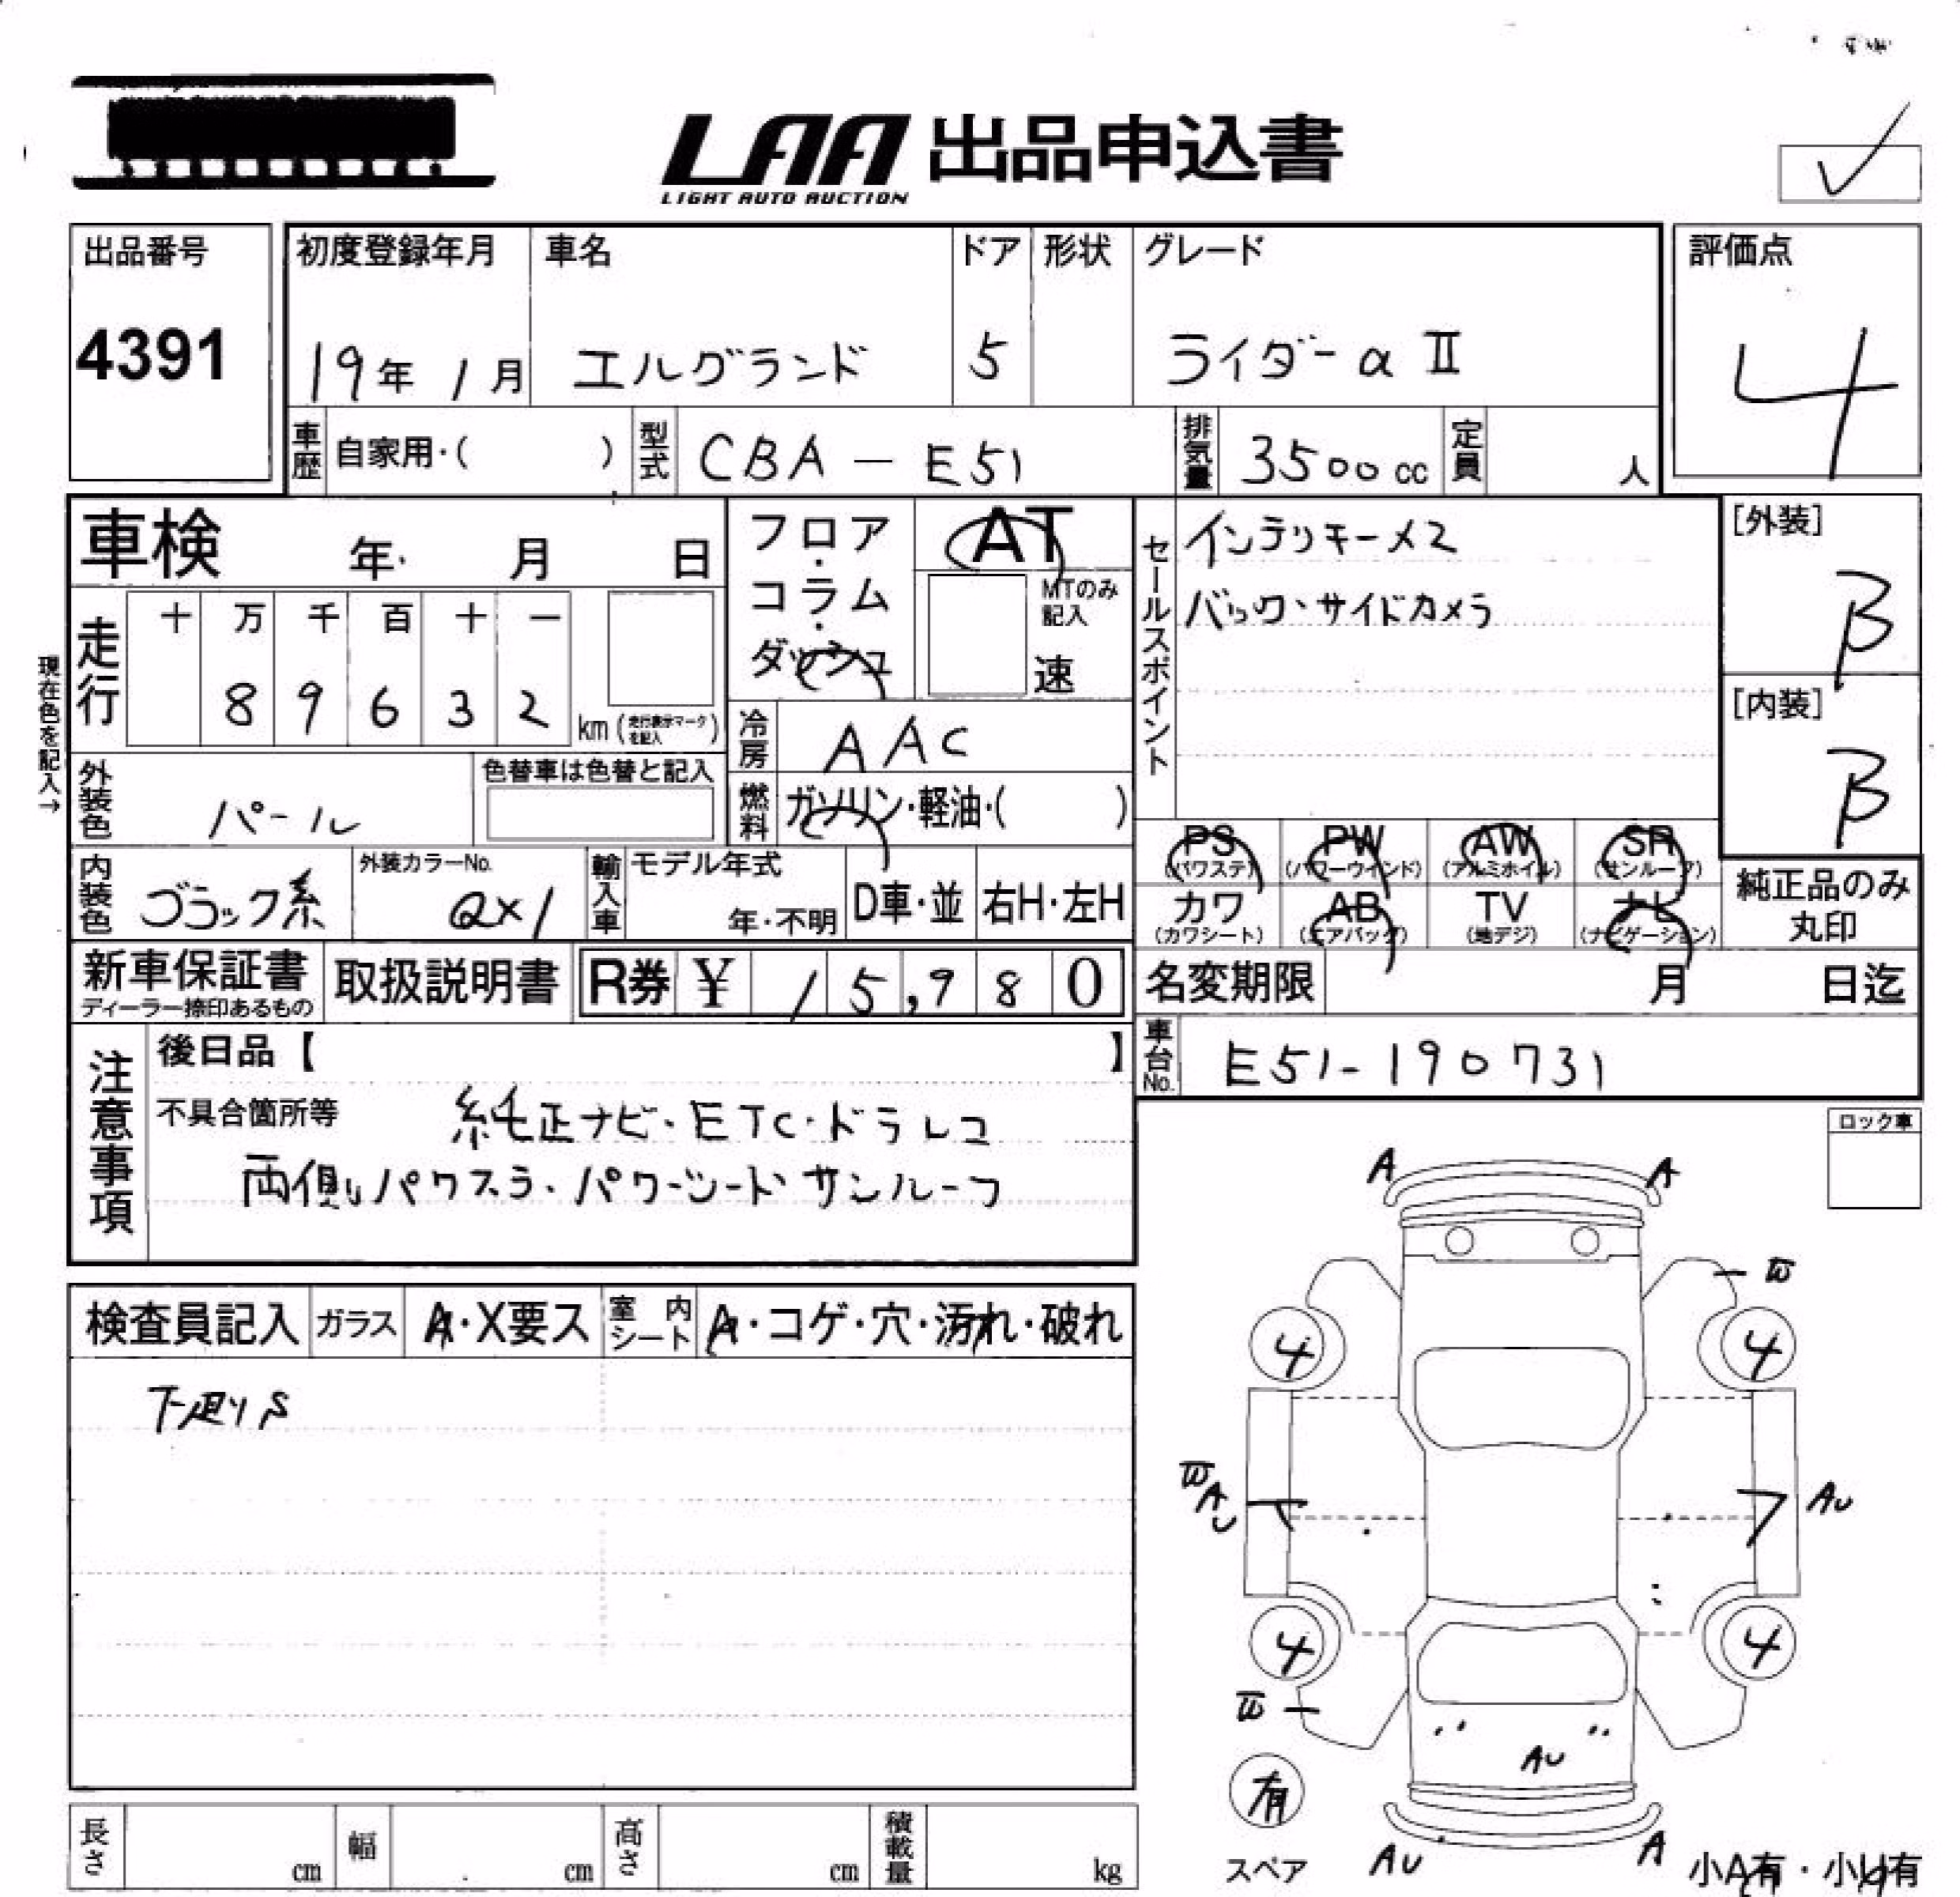 LAA 出品申込書
LIGHT AUTO AUCTION
出品番号
4391
初度登録年月 車名 ドア 形状 グレード
19年 1月 エルグランド 5 ライダーα II
評価点
4
車歴 自家用・( ) 型式 CBA - E51 排気量 3500 cc 定員 人
車検 年 月 日
フロア・コラム・ダッシュ
AT
MTのみ記入
速
セールスポイント
インテリキーメ2
バック・サイドカメラ
[外装]
B
[内装]
B
現在色を記入→
走行 十 万 千 百 十 一
8 9 6 3 2 km (走行表示マークを記入)
冷房 AAC
外装色 パール
色替車は色替と記入
燃料 ガソリン・軽油・( )
内装色 ブラック系
外装カラーNo.
QX1
輸入車 モデル年式
年・不明
D車・並 右H・左H
PS (パワステ) PW (パワーウインド) AW (アルミホイル) SR (サンルーフ)
カワ (カワシート) AB (エアバッグ) TV (地デジ) ナビ (ナビゲーション)
純正品のみ
丸印
新車保証書
ディーラー捺印あるもの
取扱説明書
R券 ¥ 15,980
名変期限 月 日迄
車台No. E51-190731
注意事項
後日品【 】
不具合箇所等 純正ナビ・ETC・ドラレコ
両側パワスラ・パワーシート サンルーフ
ロック車
検査員記入 ガラス A・X要ス 室内シート A・コゲ・穴・汚れ・破れ
下廻りS
A A
W
4 4
W
AU AU
4 4
W
AU
有
スペア
AU A
小A有・小U有
長さ cm 幅 cm 高さ cm 積載量 kg